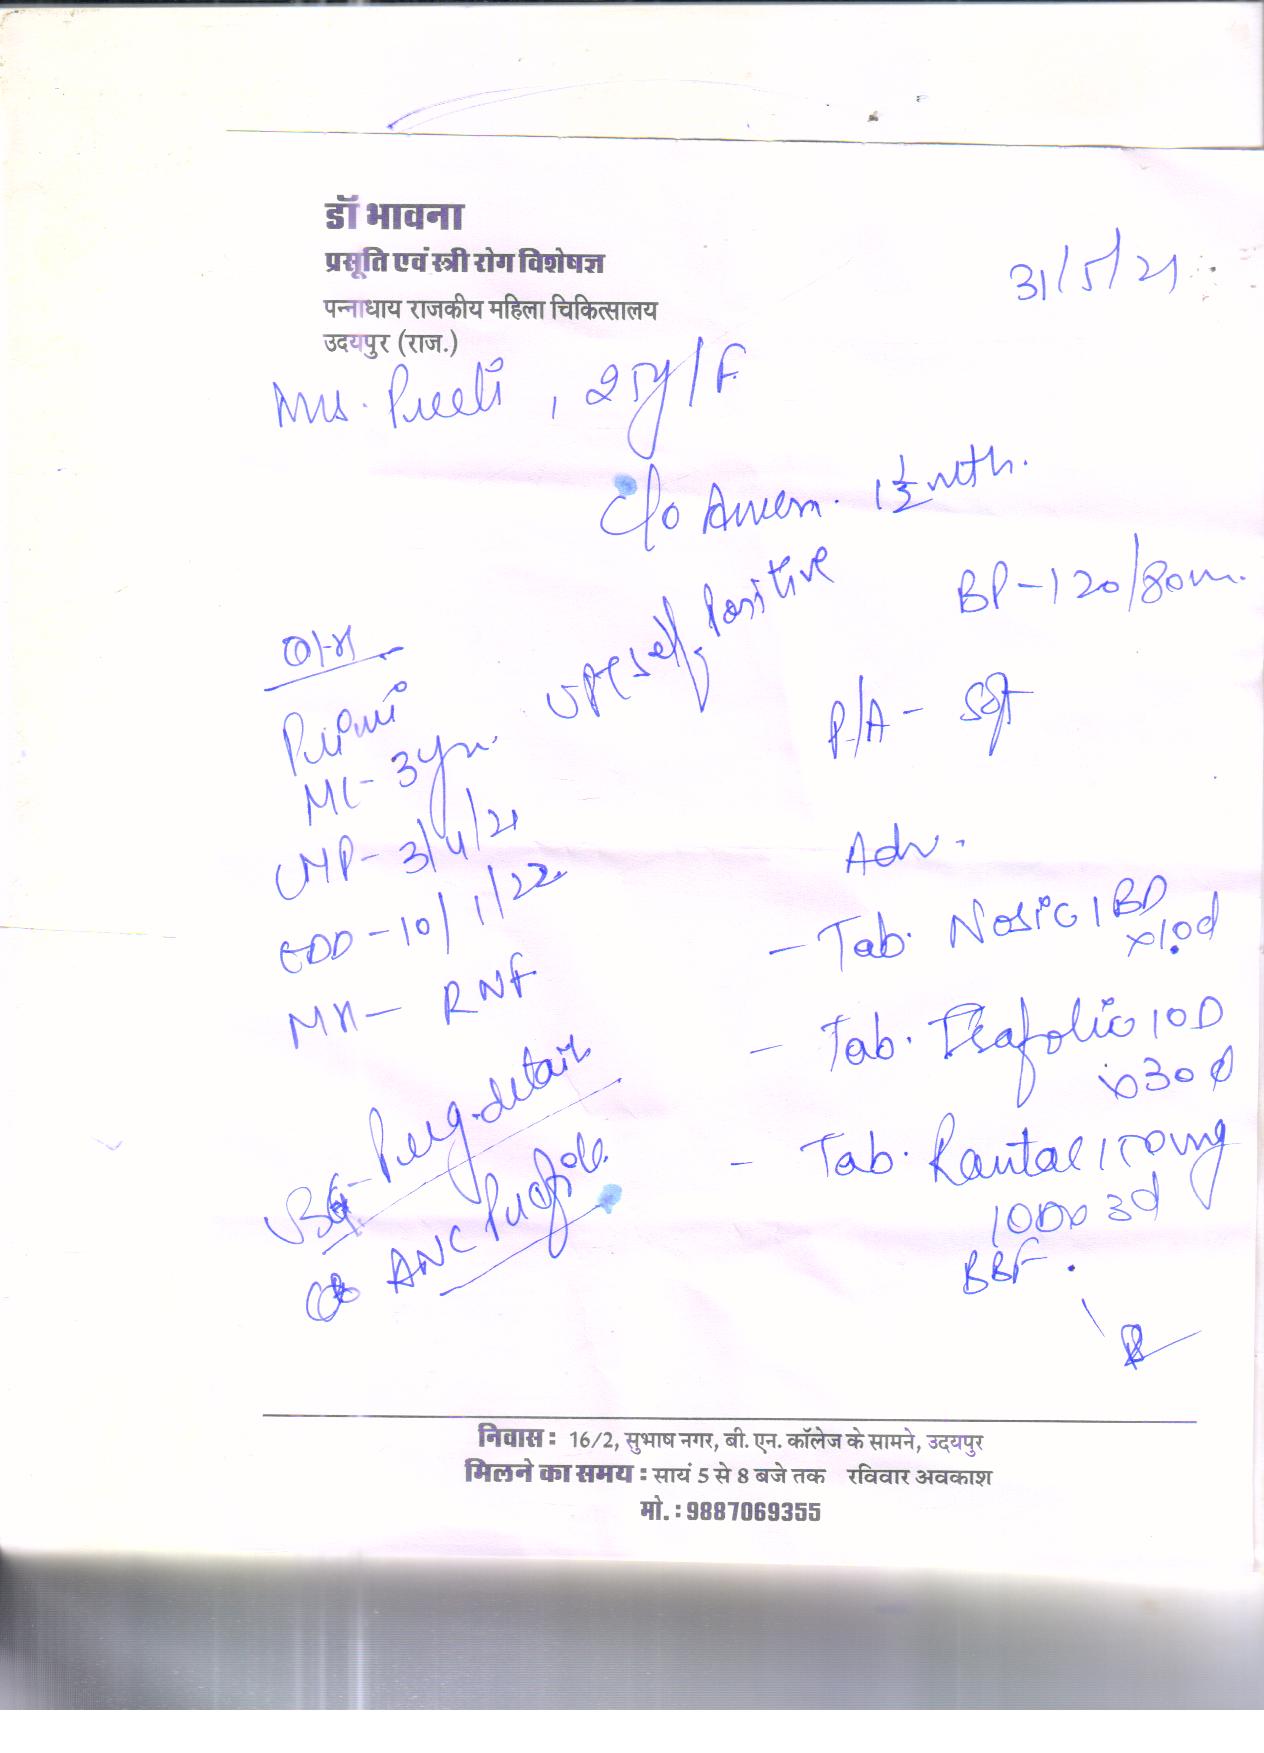 डॉ भावना
प्रसूति एवं स्त्री रोग विशेषज्ञ
पन्नाधाय राजकीय महिला चिकित्सालय
उदयपुर (राज.)
31/5/21
Mrs. Preeti, 25y/F
C/o Amen. 1½ mth.
UPT self positive
BP-120/80m.
O/H
Primi
ML-3yr.
LMP-3/4/21
EDD-10/1/22
MH-RNF
P/A- Soft
Adv.
- Tab. Nosic 1 BD
x10d
- Tab. 1OD
x30d
- Tab. Rantac 150mg
1OD x 3d
BBF.
USG- Preg. details
ANC Profile
निवास : 16/2, सुभाष नगर, बी. एन. कॉलेज के सामने, उदयपुर
मिलने का समय : सायं 5 से 8 बजे तक रविवार अवकाश
मो. : 9887069355